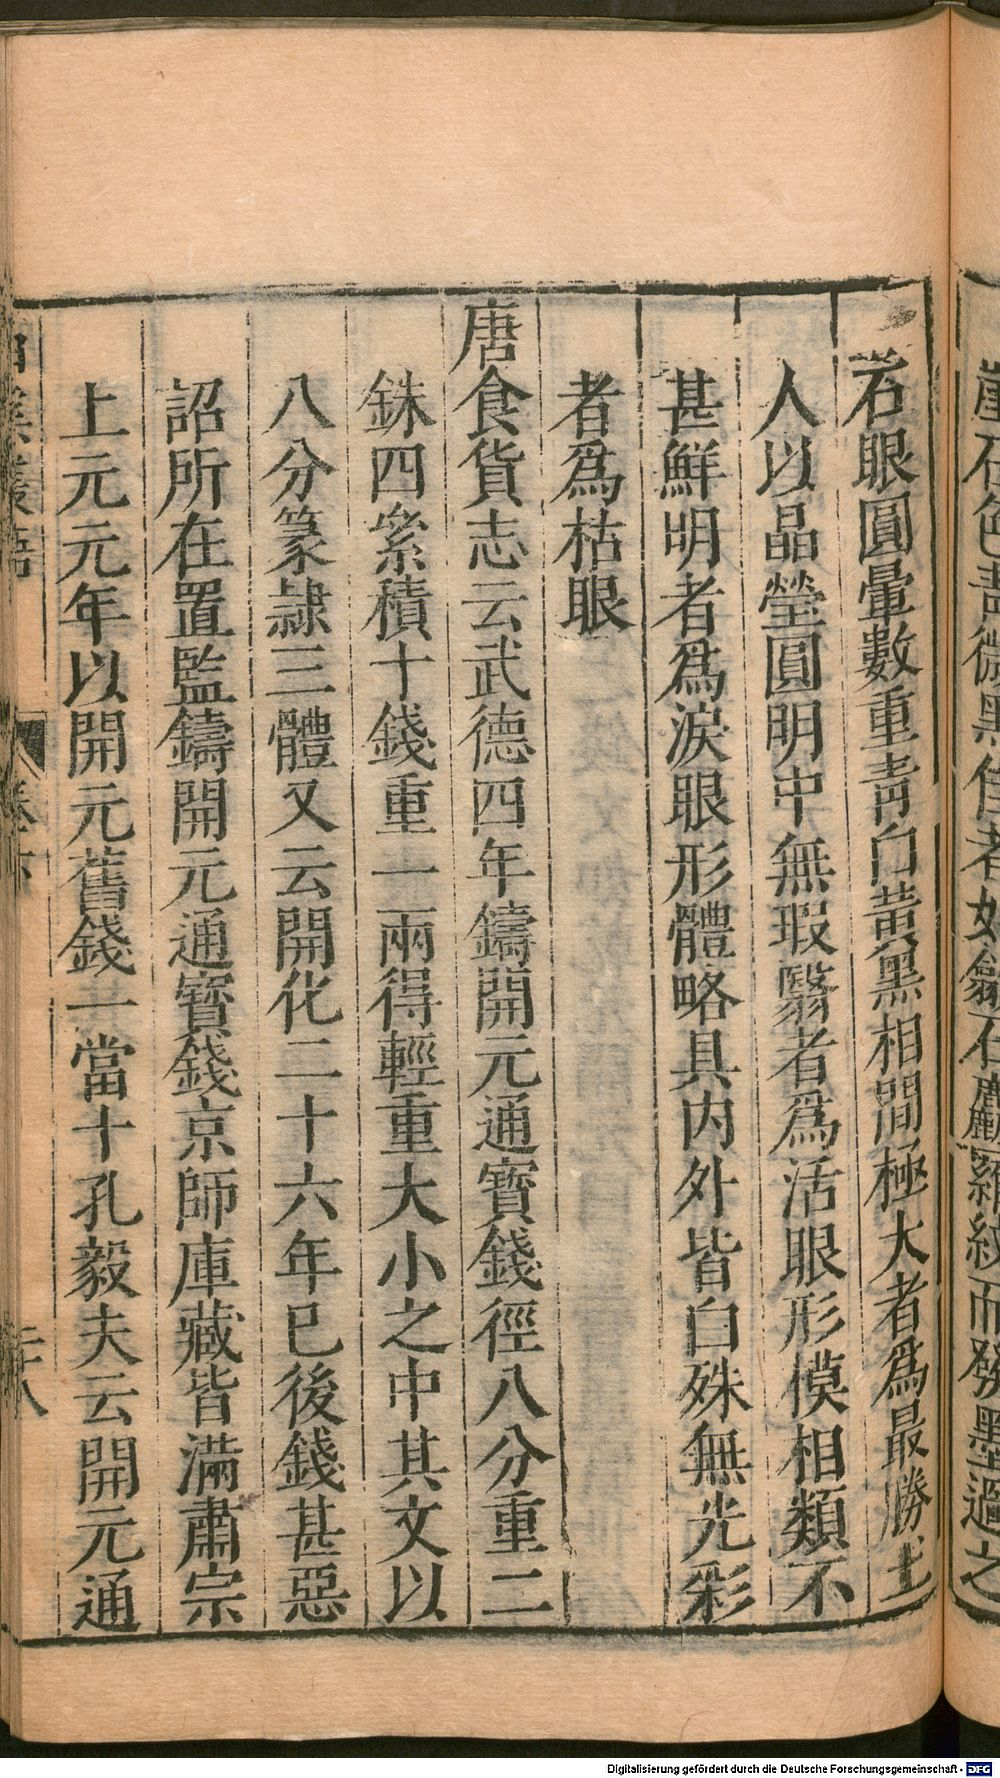 崖石色青微黑佳者如歙石麤羅紋而發墨過之
石眼圓暈數重青白黃黑相間極大者爲最勝土
人以晶瑩圓明中無瑕翳者爲活眼形模相類不
甚鮮明者爲淚眼形體略具內外皆白殊無光彩
者爲枯眼
唐食貨志云武德四年鑄開元通寶錢徑八分重二
銖四絫積十錢重一兩得輕重大小之中其文以
八分篆隷三體又云開化二十六年已後錢甚惡
詔所在置監鑄開元通寶錢京師庫藏皆滿肅宗
上元元年以開元舊錢一當十孔毅夫云開元通
叢語 卷六 二十八
Digitalisierung gefördert durch die Deutsche Forschungsgemeinschaft - DFG